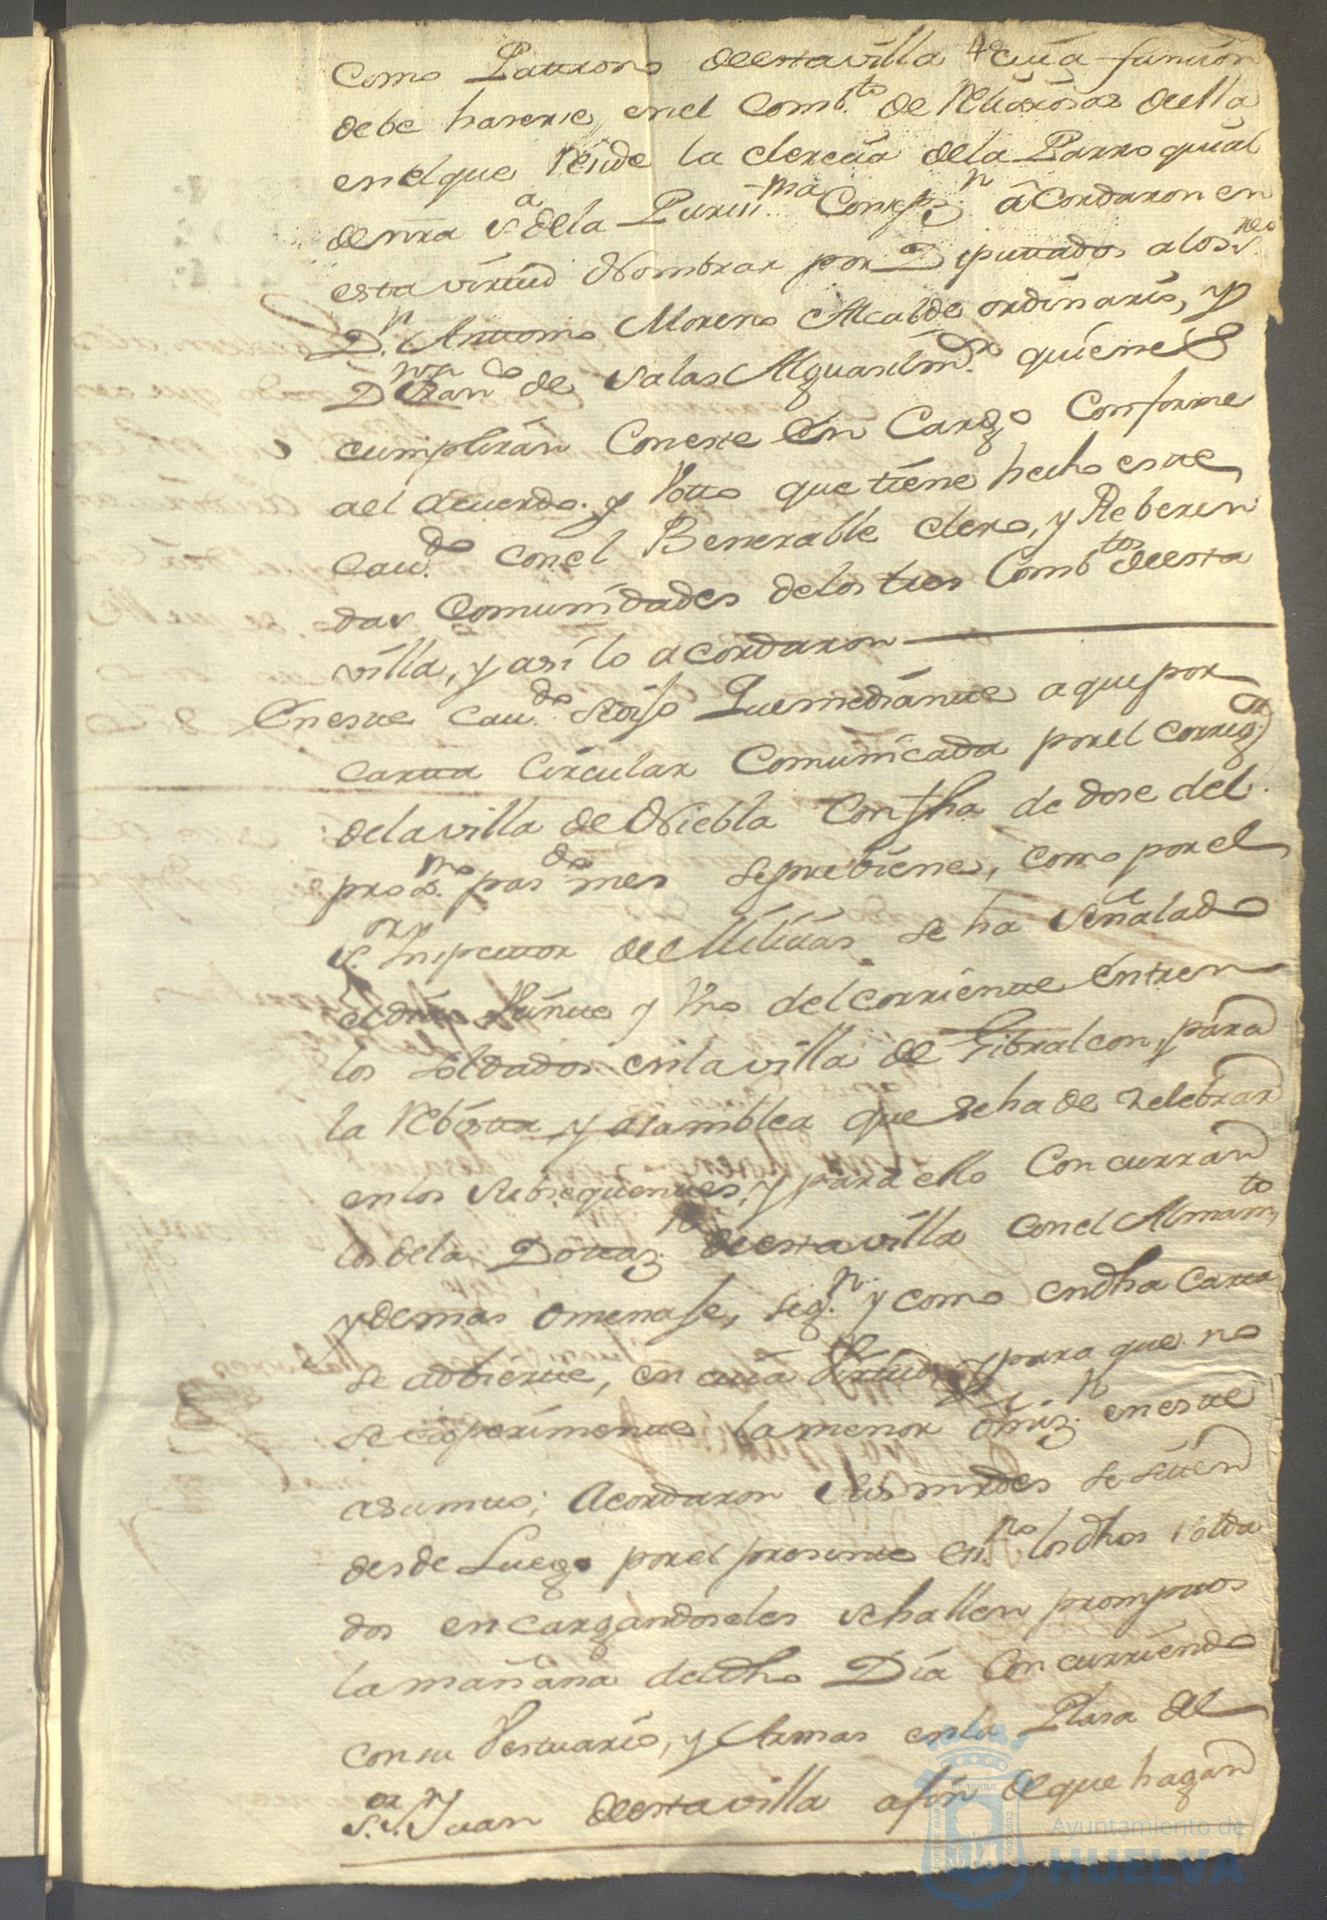 como Pattrono deestavilla cuia funcion
debe haserse, enel Comb.to de Religiosas deella
enelque reside la clerecia dela Parroquial
de nra s.a dela Puriss.ma Consepz.n acordaron en
esta virtud Nombrar por Diputtados alos s.res
D.n Anttonio Moreno Alcalde ordinario, y
D.n Fran.co de Salas Alguasil m.or quienes
cumpliran Coneste en Cargo Conforme
ael acuerdo y Votto que tiene hecho este
Cav.do conel Benerable clero, y Reberen
das Comunidades delos tres Comb.tos deesta
villa, y asi lo acordaron
Eneste Cav.do se diso Quemediante aquepor
cartta circular Comunicada porel correg.or
dela villa de Niebla Confha de dose del
prox.mo pas.do mes seprebiene, como porel
s.or Inspecttor de Milicias se ha señalado
el dia Veinte y Uno delcorriente entren
los soldados enla villa de Gibraleon, para
la Rebista y asamblea que seha de zelebrar
enlos subsequentes, y para ello Concurran
los dela Dottaz.n deesta villa Conel Armam.to
y demas omenaje, seg.n y como endha Cartta
se adbierte, en cuia Virtud, y para que no
se experimente la menor omiz.n eneste
asumto; Acordaron sus mrdes se sitten
desde Luego porel presente en.no losdhos solda
dos encargandoseles sehallen promptos
lamañana deldho Dia Concurriendo
consu Vestuario, y Armas enla Plasa del
s.or s.n Juan deesta villa afin deque hagan
Ayuntamiento de
HUELVA